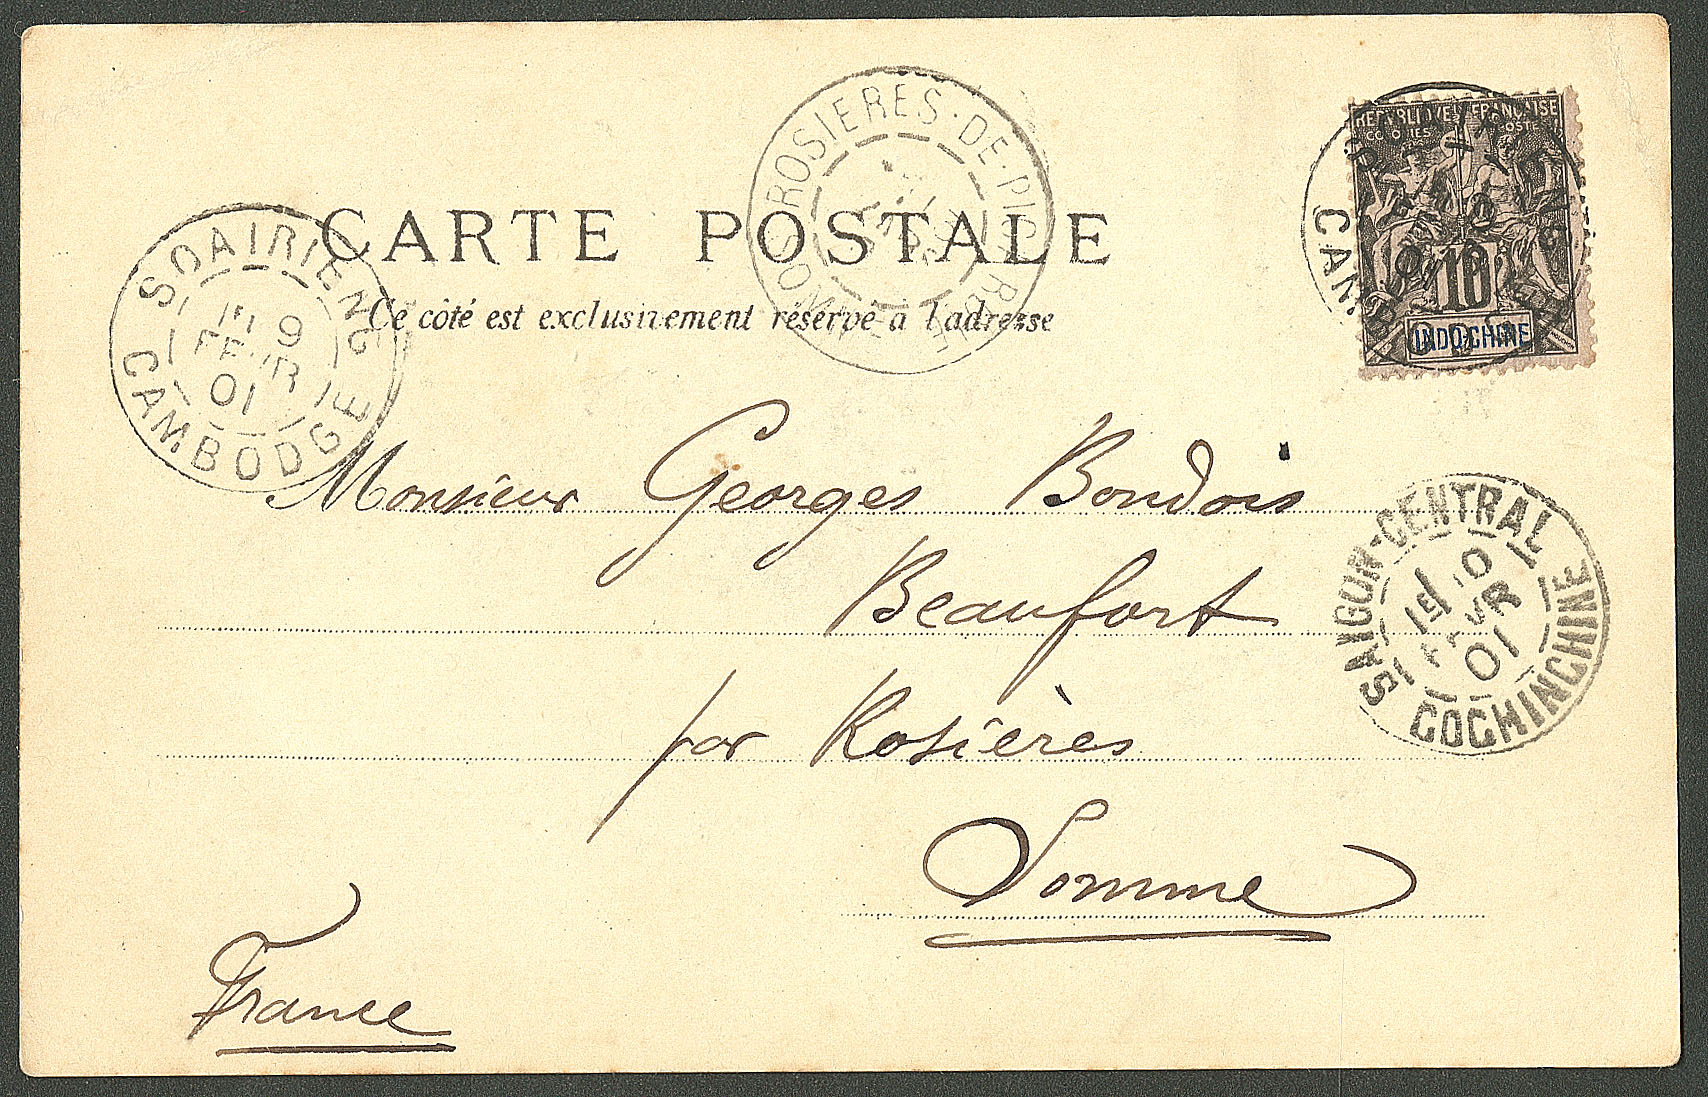 CARTE POSTALE
Ce côté est exclusivement réservé à l'adresse
ROSIERES-DE-PICARDIE
SOMME
REPUBLIQUE FRANÇAISE
COLONIES POSTES
10
INDO-CHINE
SOAIRIENG
9
FEVR
01
CAMBODGE
Monsieur Georges Bondois
Beaufort
par Rosières
Somme
France
SAIGON-CENTRAL
10
FEVR
01
COCHINCHINE